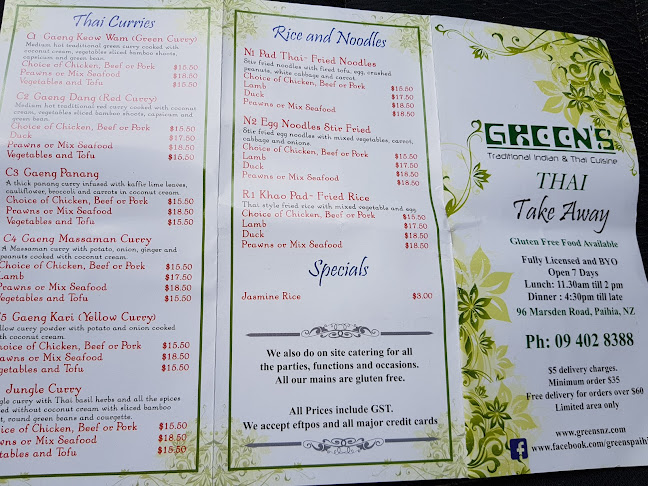 Thai Curries
C1 Gaeng Keow Wam (Green Curry)
Medium hot traditional green curry cooked with
coconut cream, vegetables sliced bamboo shoots,
capsicum and green bean.
Choice of Chicken, Beef or Pork $15.50
Prawns or Mix Seafood $18.50
Vegetables and Tofu $15.50
C2 Gaeng Dang (Red Curry)
Medium hot traditional red curry cooked with coconut
cream, vegetables sliced bamboo shoots, capsicum and
green bean.
Choice of Chicken, Beef or Pork $15.50
Duck $18.50
Prawns or Mix Seafood $18.50
Vegetables and Tofu $15.50
C3 Gaeng Panang
A thick panang curry infused with kaffir lime leaves,
cauliflower, broccoli and carrots in coconut cream.
Choice of Chicken, Beef or Pork $15.50
Prawns or Mix Seafood $18.50
Vegetables and Tofu $15.50
C4 Gaeng Massaman Curry
A Massaman curry with potato, onion, ginger and
peanuts cooked with coconut cream.
Choice of Chicken, Beef or Pork $15.50
Lamb $17.50
Prawns or Mix Seafood $18.50
Vegetables and Tofu $15.50
5 Gaeng Kari (Yellow Curry)
llow curry powder with potato and onion cooked
th coconut cream.
hoice of Chicken, Beef or Pork $15.50
rawns or Mix Seafood $18.50
egetables and Tofu $15.50
Jungle Curry
gle curry with Thai basil herbs and all the spices
ed without coconut cream with sliced bamboo
t, round green beans and courgette.
ice of Chicken, Beef or Pork $15.50
wns or Mix Seafood $18.50
tables and Tofu $15.50
Rice and Noodles
N1 Pad Thai- Fried Noodles
Stir fried noodles with fried tofu, egg, crushed
peanuts, white cabbage and carrot.
Choice of Chicken, Beef or Pork $15.50
Lamb $17.50
Duck $18.50
Prawns or Mix Seafood $18.50
N2 Egg Noodles Stir Fried
Stir fried egg noodles with mixed vegetables, carrot,
cabbage and onions.
Choice of Chicken, Beef or Pork $15.50
Lamb $17.50
Duck $18.50
Prawns or Mix Seafood $18.50
R1 Khao Pad- Fried Rice
Thai style fried rice with mixed vegetable and egg
Choice of Chicken, Beef or Pork $15.50
Lamb $17.50
Duck $18.50
Prawns or Mix Seafood $18.50
Specials
Jasmine Rice $3.00
We also do on site catering for all
the parties, functions and occasions.
All our mains are gluten free.
All Prices include GST.
We accept eftpos and all major credit cards
GREEN'S
Traditional Indian & Thai Cuisine
THAI
Take Away
Gluten Free Food Available
Fully Licensed and BYO
Open 7 Days
Lunch: 11.30am till 2 pm
Dinner : 4:30pm till late
96 Marsden Road, Paihia, NZ
Ph: 09 402 8388
$5 delivery charges.
Minimum order $35
Free delivery for orders over $60
Limited area only
www.greensnz.com
www.facebook.com/greenspaihi